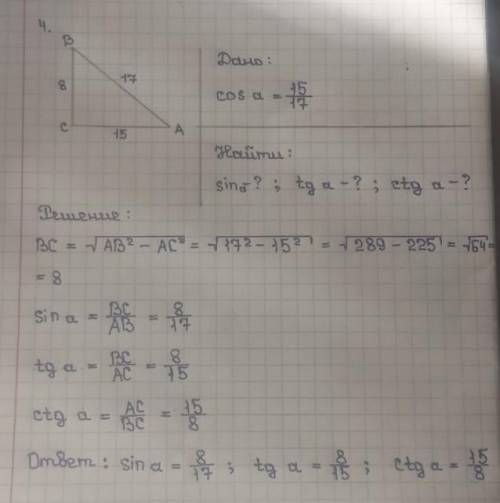 4.
B
Дано:
17
8
cos a = 15/17
C
A
15
Найти:
sin a - ? ; tg a - ? ; ctg a - ?
Решение:
BC = √AB² - AC² = √17² - 15² = √289 - 225 = √64 =
= 8
sin a = BC/AB = 8/17
tg a = BC/AC = 8/15
ctg a = AC/BC = 15/8
Ответ: sin a = 8/17 ; tg a = 8/15 ; ctg a = 15/8